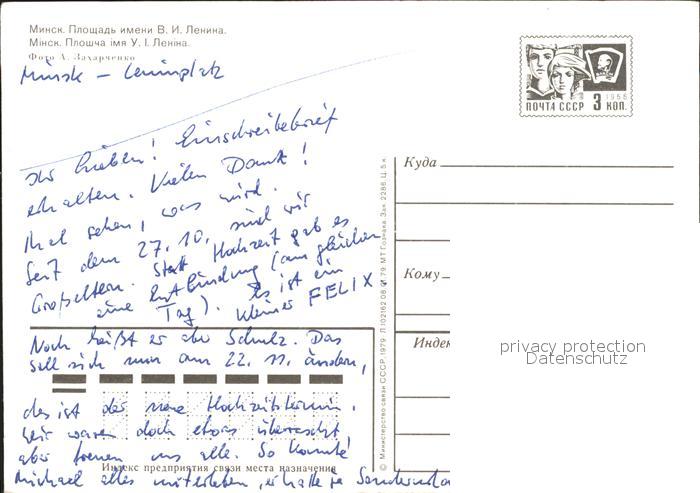 Минск. Площадь имени В. И. Ленина.
Мінск. Плошча імя У. І. Леніна.
Фото А. Захарченко
Minsk — Leninplatz
Ihr Lieben! Einschreibebrief
erhalten. Vielen Dank!
Mal sehen, was wird.
Seit dem 27.10. sind wir
Großeltern. Statt Hochzeit gab es
eine Entbindung (am gleichen
Tag). Es ist ein
kleiner FELIX.
Noch heißt er aber Schulz. Das
soll sich nun am 22.11. ändern,
das ist der neue Hochzeitstermin.
Wir waren doch etwas überrascht,
aber freuen uns alle. So konnte
Michael alles miterleben, er hatte ja
ПОЧТА СССР 3 КОП.
1958
Куда
Кому
Индек
privacy protection
Datenschutz
Индекс предприятия связи места назначения
© Министерство связи СССР. 1979. МТ Гознака. Зак. 2286. Ц. 5 к.